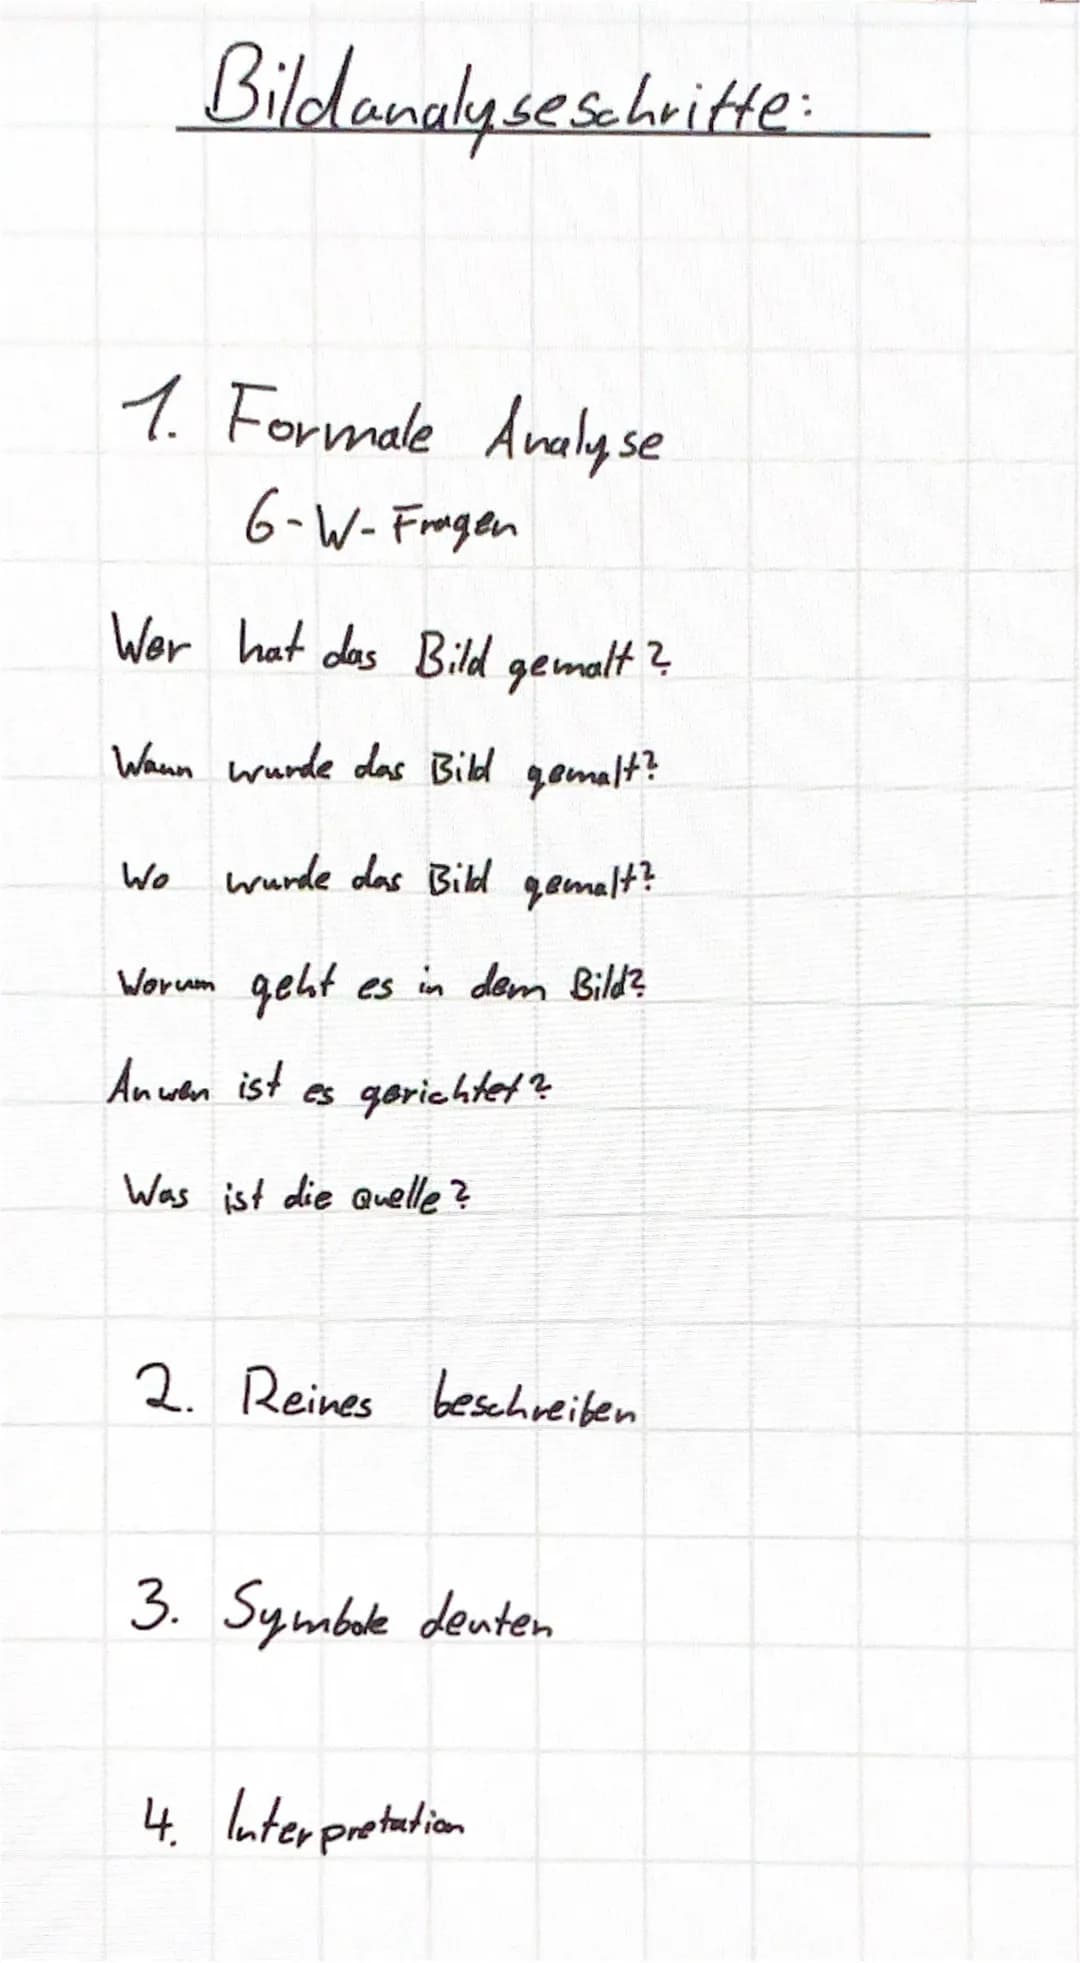 Bildanalyseschritte:
1. Formale Analyse
6-W-Fragen
Wer hat das Bild gemalt?
Wann wurde das Bild gemalt?
Wo wurde das Bild gemalt?
Worum geht es in dem Bild?
An wen ist es gerichtet?
Was ist die Quelle?
2. Reines beschreiben
3. Symbole deuten
4. Interpretation